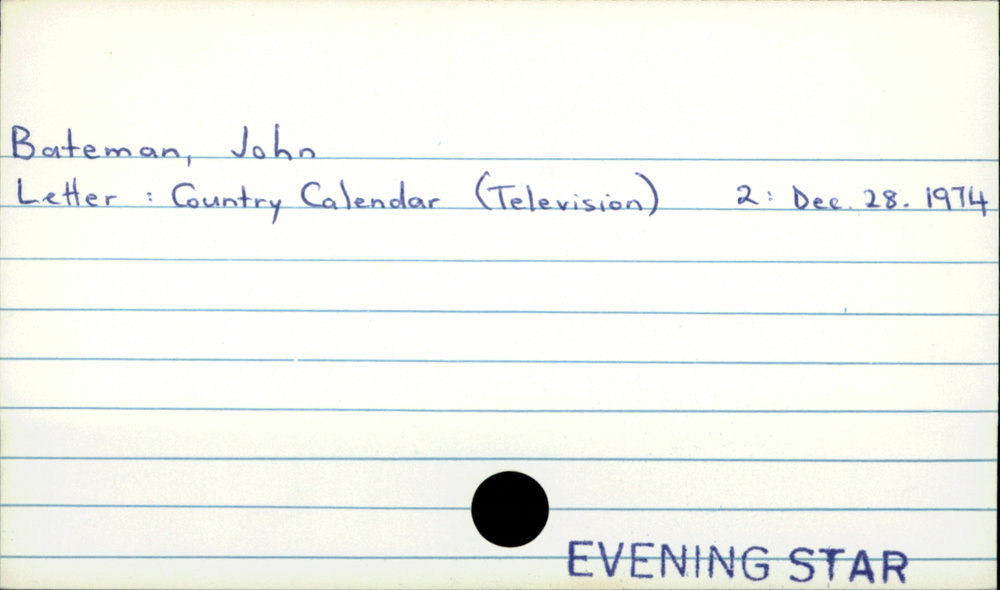 Bateman, John
Letter : Country Calendar (Television) 2: Dec. 28. 1974
EVENING STAR